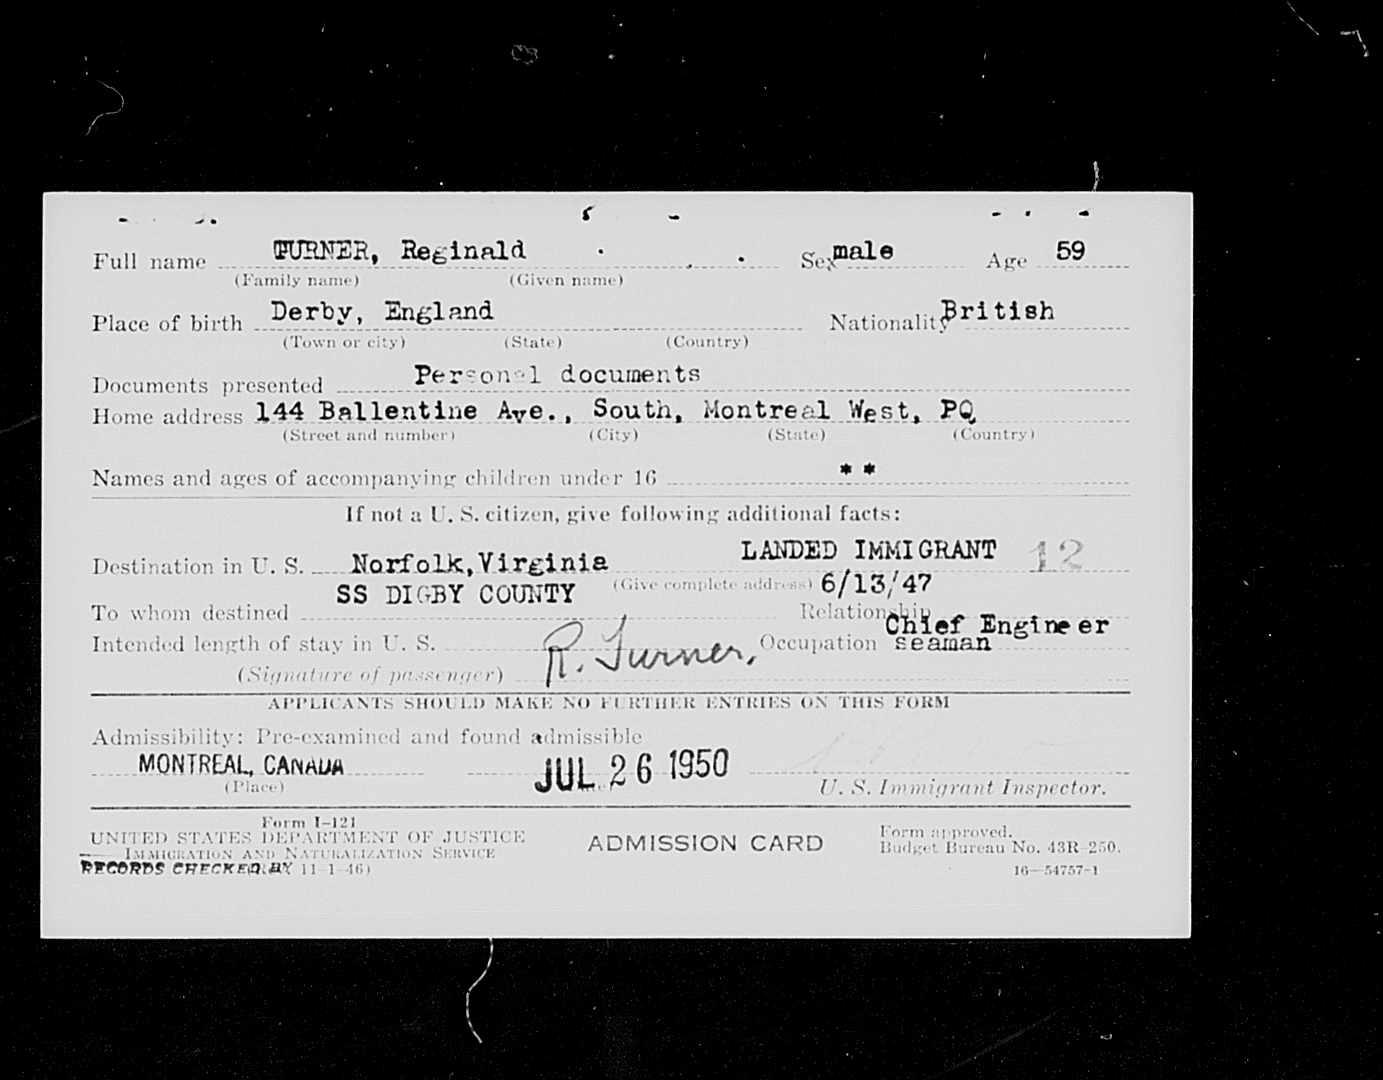 Full name TURNER, Reginald Sex male Age 59
(Family name) (Given name)
Place of birth Derby, England Nationality British
(Town or city) (State) (Country)
Documents presented Personal documents
Home address 144 Ballentine Ave., South, Montreal West, PQ
(Street and number) (City) (State) (Country)
Names and ages of accompanying children under 16 **
If not a U. S. citizen, give following additional facts:
LANDED IMMIGRANT 12
Destination in U. S. Norfolk, Virginia
SS DIGBY COUNTY (Give complete address) 6/13/47
To whom destined Relationship
Chief Engineer
Intended length of stay in U. S. R. Turner. Occupation seaman
(Signature of passenger)
APPLICANTS SHOULD MAKE NO FURTHER ENTRIES ON THIS FORM
Admissibility: Pre-examined and found admissible
MONTREAL, CANADA JUL 26 1950
(Place) U. S. Immigrant Inspector.
Form I-121
UNITED STATES DEPARTMENT OF JUSTICE
IMMIGRATION AND NATURALIZATION SERVICE
RECORDS CHECKED BY 11-1-46)
ADMISSION CARD
Form approved.
Budget Bureau No. 43R-250.
16—54757-1